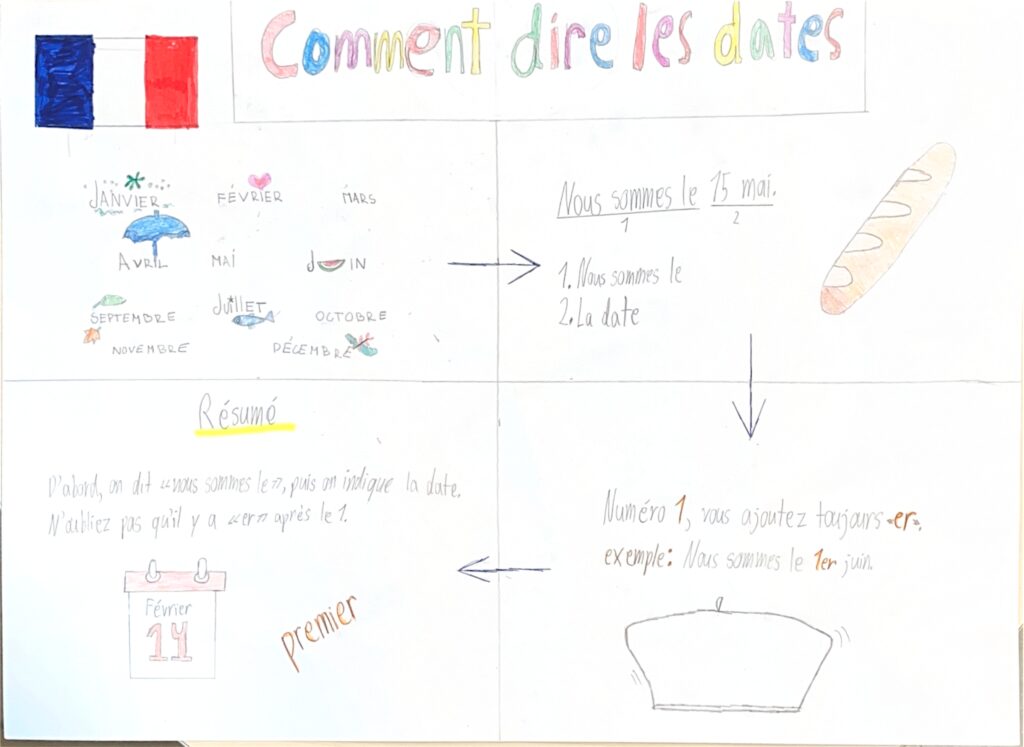 Comment dire les dates
JANVIER FÉVRIER MARS
AVRIL MAI JUIN
SEPTEMBRE JUILLET OCTOBRE
NOVEMBRE DÉCEMBRE
Nous sommes le 15 mai.
1 2
1. Nous sommes le
2. La date
Numéro 1, vous ajoutez toujours «er».
exemple: Nous sommes le 1er juin.
Résumé
D'abord, on dit «nous sommes le», puis on indique la date.
N'oubliez pas qu'il y a «er» après le 1.
Février
14
premier